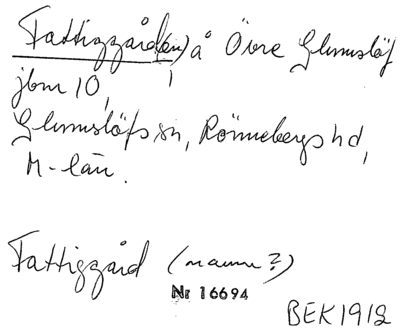 Fattiggård(en) å Övre Glumslöf
jbm 10,
Glumslöfs sn, Rönnebergs hd,
M-län.
Fattiggård (namn?)
Nr 16694
BEK1912